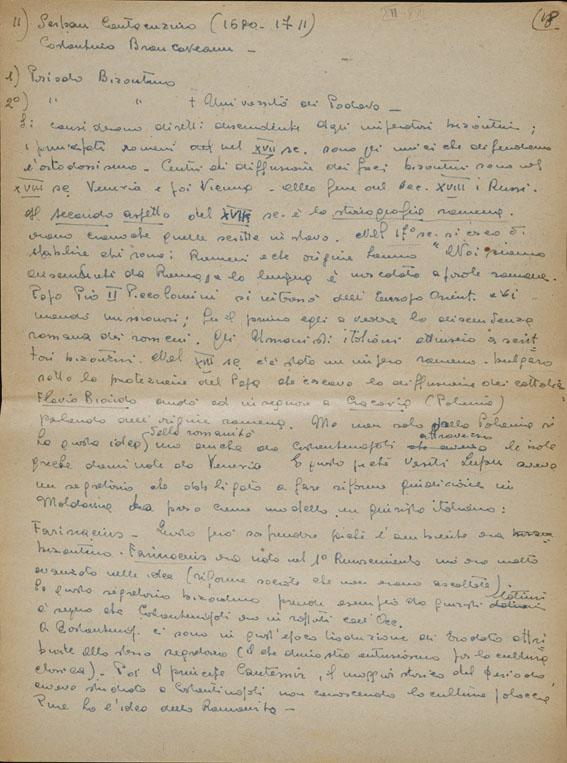 18
11) Serban Cantacuzino (1680-1711)
Costantino Brancoveanu —
1) Periodo Bizantino
2°) " " + Università di Padova —
Si considerano diretti discendenti dagli imperatori bizantini ;
i principati romeni nel XVII sc. sono gli unici che difendono
l'ortodossismo. Centri di diffusione dei bizantini sono nel
XVIII sc. Venezia e poi Vienna - alla fine del sec. XVIII i Russi.
Il secondo aspetto del XVII sc. è la storiografia romena.
erano cronache quelle scritte in slavo. Nel 17° sc. si cerca di
stabilire chi sono i Rumeni e che origine hanno "Noi siamo
discendenti da Roma, e la lingua è mescolata a parole romane.
Papa Pio II Piccolomini si interessò dell'Europa Orient. e vi
mandò missionari ; fu il primo egli a vedere la discendenza
romana dei romeni. Gli Umanisti italiani attinsero a scrit
tori bizantini. Nel XIII sc. c'è stato un impero romeno-bulgaro
sotto la protezione del Papa che cercava la diffusione dei cattolici
Flavio Biondo andò ad insegnare a Cracovia (Polonia)
parlando dell'origine romena. Ma non solo dalla Polonia si
ha questa idea della romanità ma anche da Costantinopoli attraverso le isole
greche dominate da Venezia. E questo perché Vasili Lupu aveva
un segretario che obbligato a fare riforme giudiziarie in
Moldavia ha preso come modello un giurista italiano :
Farinacius - Questo però sorprende perché l'ambiente era
bizantino. Farinacius era noto nel 1° Rinascimento ma era molto
avanzato nelle idee (riforme sociali che non erano ascoltate).
Se questo segretario bizantino prende esempio da giuristi latini
è segno che Costantinopoli era in rapporti coll'Occ.
A Costantinop. ci sono in quest'epoca traduzione di Erodoto attri
buite allo stesso segretario (il che dimostra entusiasmo per la cultura
classica). Poi il principe Cantemir, il maggior storico del periodo,
aveva studiato a Costantinopoli non conoscendo la cultura polacca
Pure ha l'idea della Romanità —